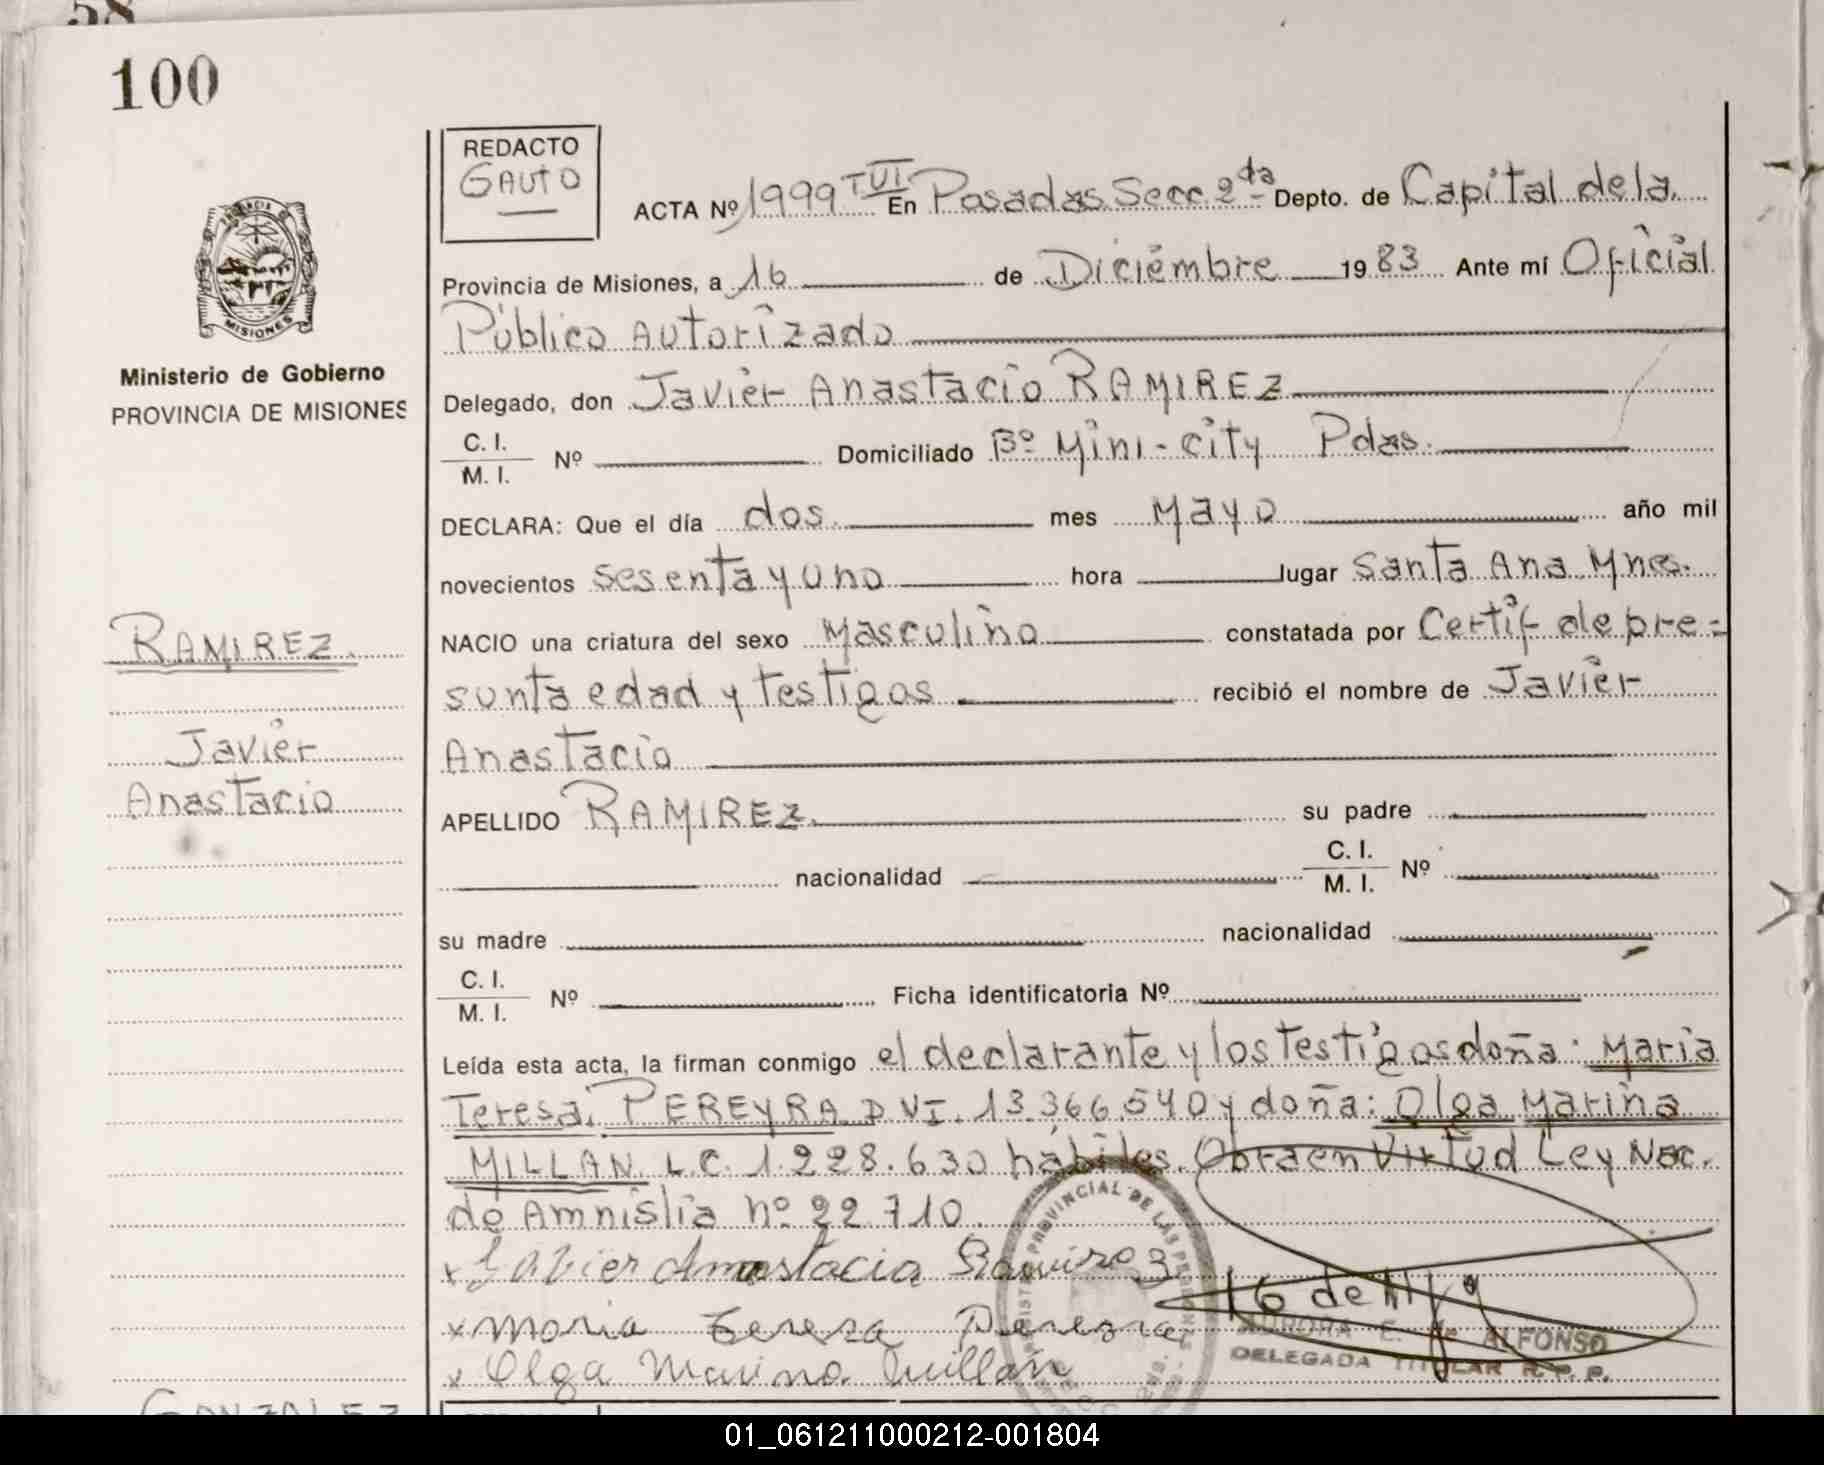 58
100
REDACTO
GAUTO
ACTA Nº 1999 TVI En Posadas Secc. 2da Depto. de Capital de la
Provincia de Misiones, a 16 de Diciembre 1983 Ante mí Oficial
Público Autorizado
Delegado, don Javier Anastacio RAMIREZ
C. I.
M. I. Nº Domiciliado Bº Mini-city Pdas.
DECLARA: Que el día dos mes Mayo año mil
novecientos sesenta y uno hora lugar Santa Ana Mnes.
NACIO una criatura del sexo Masculino constatada por Certif de pre=
sunta edad y testigos recibió el nombre de Javier
Anastacio
APELLIDO RAMIREZ. su padre
nacionalidad C. I.
M. I. Nº
su madre nacionalidad
C. I.
M. I. Nº Ficha identificatoria Nº
Leída esta acta, la firman conmigo el declarante y los testigos doña: Maria
Teresa. PEREYRA D.N.I. 13.366.540 y doña: Olga Marina
MILLAN L.C. 1.228.630 hábiles. Obra en Virtud Ley Nac.
de Amnistia nº 22.710.
x Javier Anastacio Ramirez
x Maria Teresa Pereyra
x Olga Marina Millan
MISIONES
Ministerio de Gobierno
PROVINCIA DE MISIONES
RAMIREZ.
Javier
Anastacio
PROVINCIAL DE LAS
AURORA E. de ALFONSO
DELEGADA TITULAR R. P. P.
GONZALEZ
01_061211000212-001804